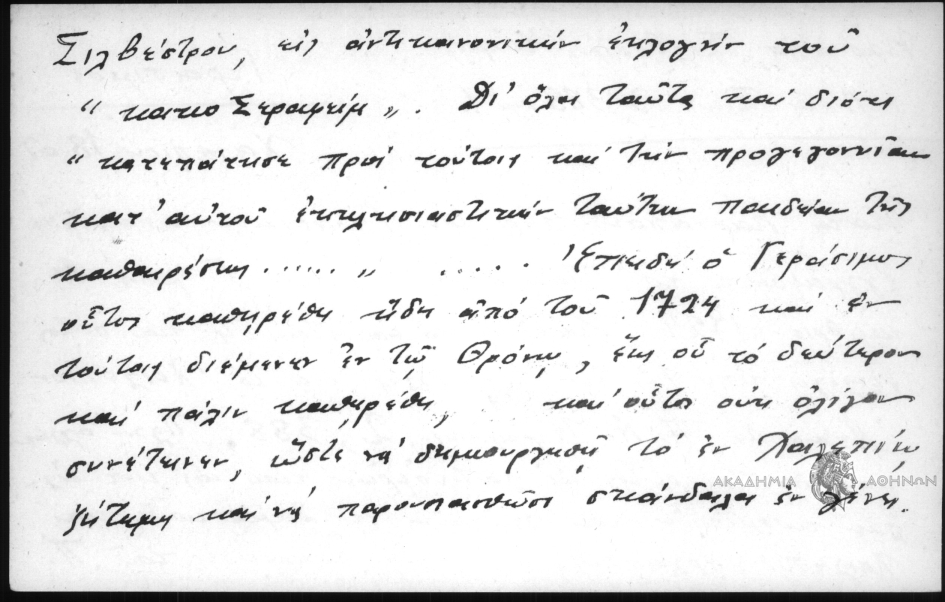 Σιλβέστρου, εἰς ἀντικανονικήν ἐκλογήν τοῦ
"κακο Σεραφείμ". Δι' ὅλα ταῦτα καί διότι
"κατεπάτησε πρός τούτοις καί τήν προγεγονυῖαν
κατ' αὐτοῦ ἐκκλησιαστικήν ταύτην παιδείαν τῆς
καθαιρέσεως ......" ..... Ἐπειδή ὁ Γεράσιμος
οὗτος καθηρέθη ἤδη ἀπό τοῦ 1724 καί ἐν
τούτοις διέμενεν ἐν τῷ Θρόνῳ, ἕως οὗ τό δεύτερον
καί πάλιν καθηρέθη, καί οὗτος οὐκ ὀλίγον
συνέτεινεν, ὥστε νά δημιουργηθῇ τό ἐν Χαλεπίῳ
ζήτημα καί νά παρουσιασθῶσι σκάνδαλα ἐν
ΑΚΑΔΗΜΙΑ ΑΘΗΝΩΝ